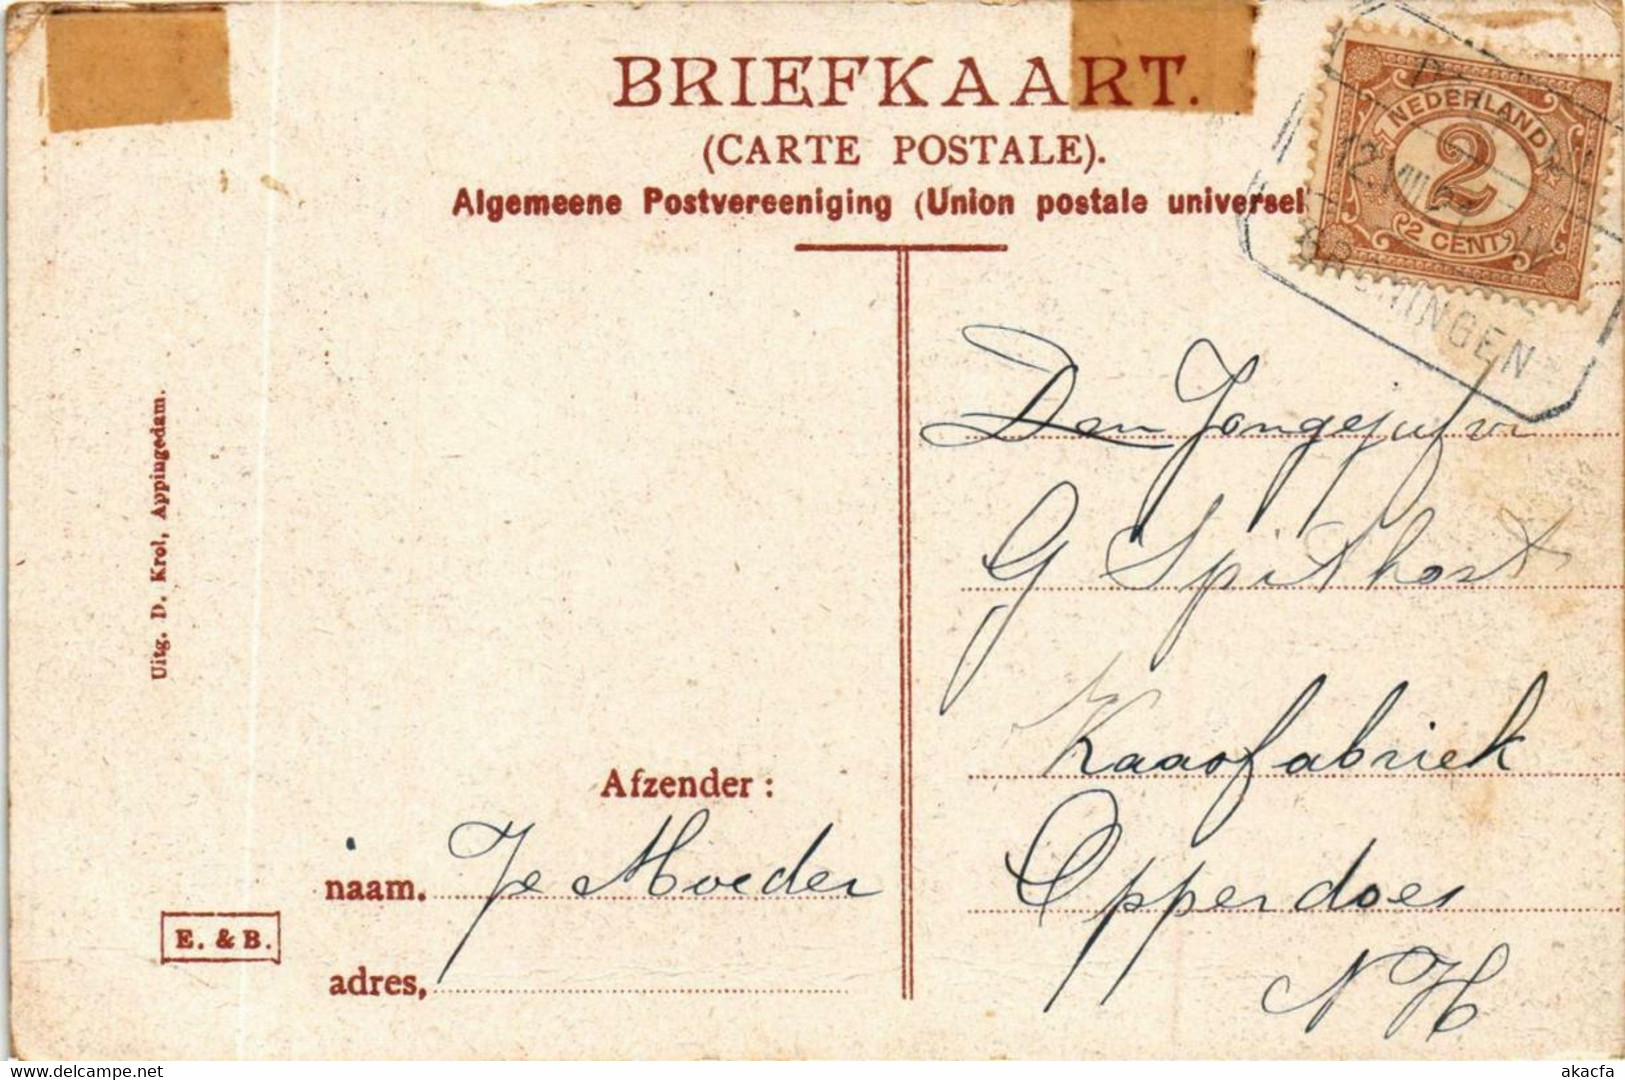 BRIEFKAART.
(CARTE POSTALE).
Algemeene Postvereeniging (Union postale universel
NEDERLAND
2
2 CENT
12 VIII
Uitg. D. Krol, Appingedam.
Den Jongejufvr
G Spithorst
Kaasfabriek
Opperdoes
N H
Afzender:
naam. Je Moeder
adres,
E. & B.
www.delcampe.net
akacfa